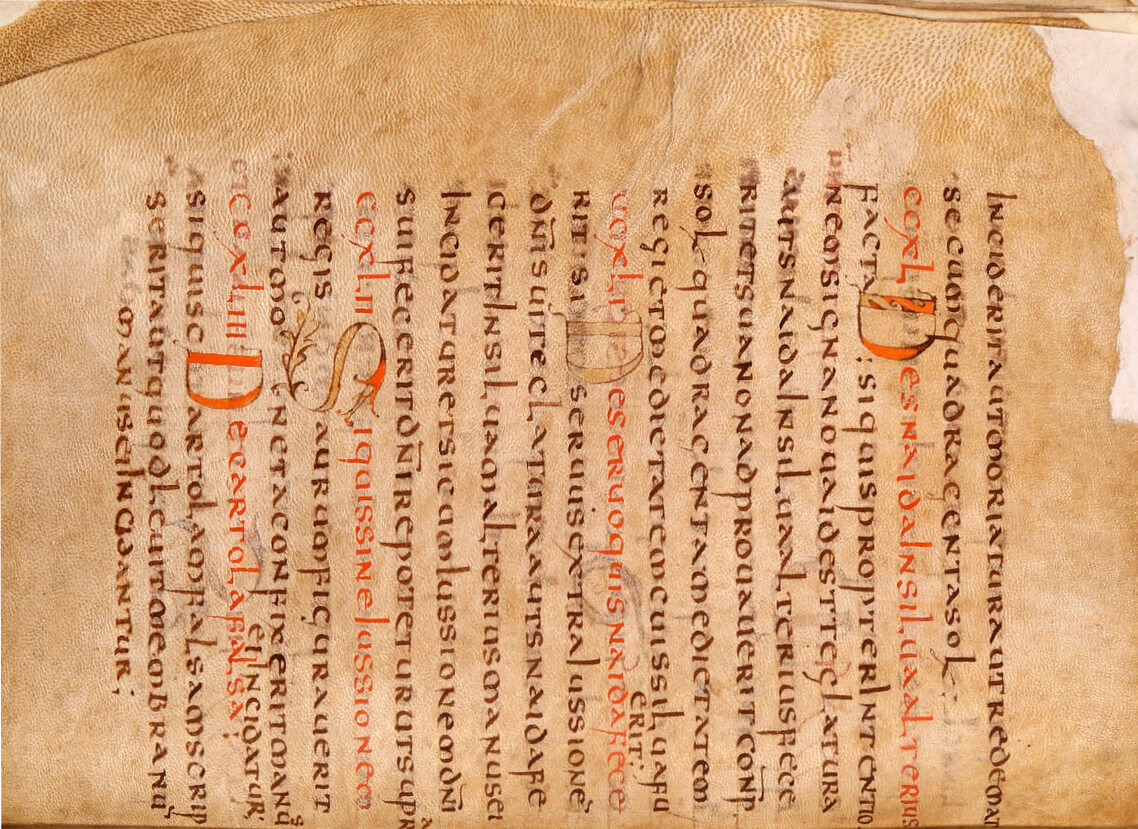 INCIDERITAUTMORIATURAUTREDEMAT
SECUMQUADRAGENTASOL;
CCXL DESNAIDAINSILUAALTERIUS
FACTA; SIQUISPROPTERINTENTIO
NEMSIGNANOUAIDESTTEGLATURA
AUTSNAIDAINSILUAALTERIUSFECE
RITETSUANONADPROUAUERITCONP̄
SOL QUADRAGENTAMEDIETATEM
REGIETMEDIETATEMCUISSILUAFU
ERIT;
CCXLI DESERUOQUISNAIDAFECE
RIT SI SERUUSEXTRAIUSSIONE
DN̄ISUITECLATURAAUTSNAIDAFE
CERITINSILUAMALTERIUSMANUSEI
INCIDATURETSICUMIUSSIONEMDN̄I
SUIFECERITDN̄IREPOTETURUTSUPRA
CCXLII SIQUISSINEIUSSIONEM
REGIS AURUMFIGURAUERIT
AUTMONETACONFIXERITMANUS
EIINCIDATUR;
CCXLIII DECARTOLAFALSA;
SIQUISCARTOLAMFALSAMSCRIP
SERITAUTQUODLEUITMEMBRANU
MANUSEIINCIDANTUR;